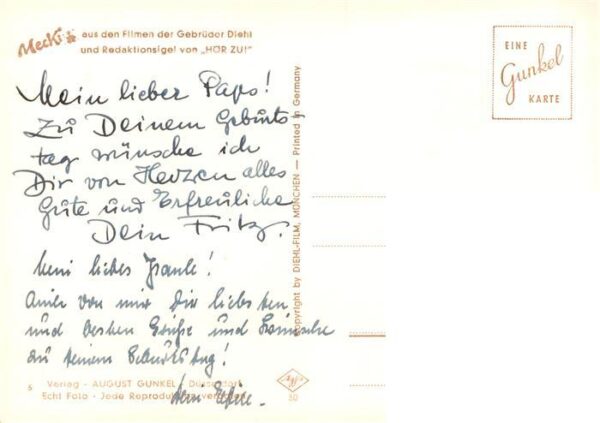 Mecki aus den Filmen der Gebrüder Diehl
und Redaktionsigel von „HÖR ZU!"
EINE
Gunkel
KARTE
Mein lieber Paps!
Zu Deinem Geburts-
tag wünsche ich
Dir von Herzen alles
Gute und Erfreuliche
Dein Fritz.
Mein liebes
Auch von mir Dir liebsten
und besten Grüße und Wünsche
zu Deinem Geburtstag!
Dein
Copyright by DIEHL-FILM, MÜNCHEN — Printed in Germany
6 Verlag - AUGUST GUNKEL - Düsseldorf
Echt Foto - Jede Reproduktion verboten
Agfa
50